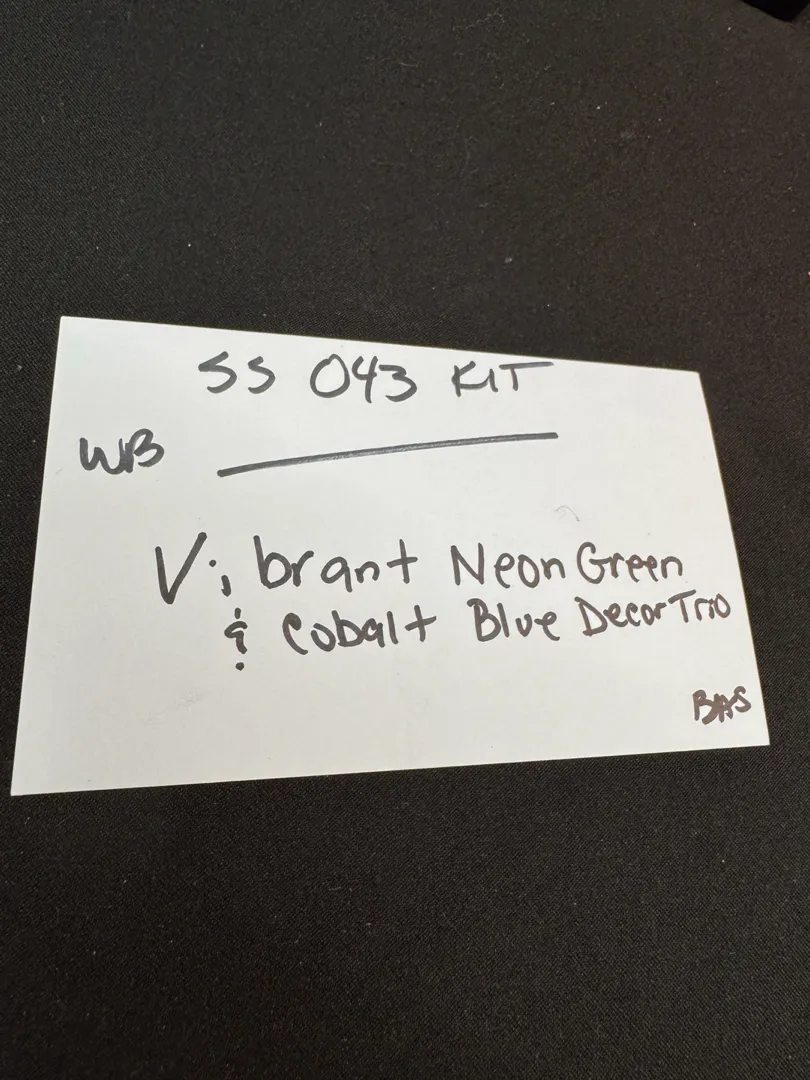 SS 043 KIT
WB
Vibrant Neon Green
& Cobalt Blue Decor Trio
BAS